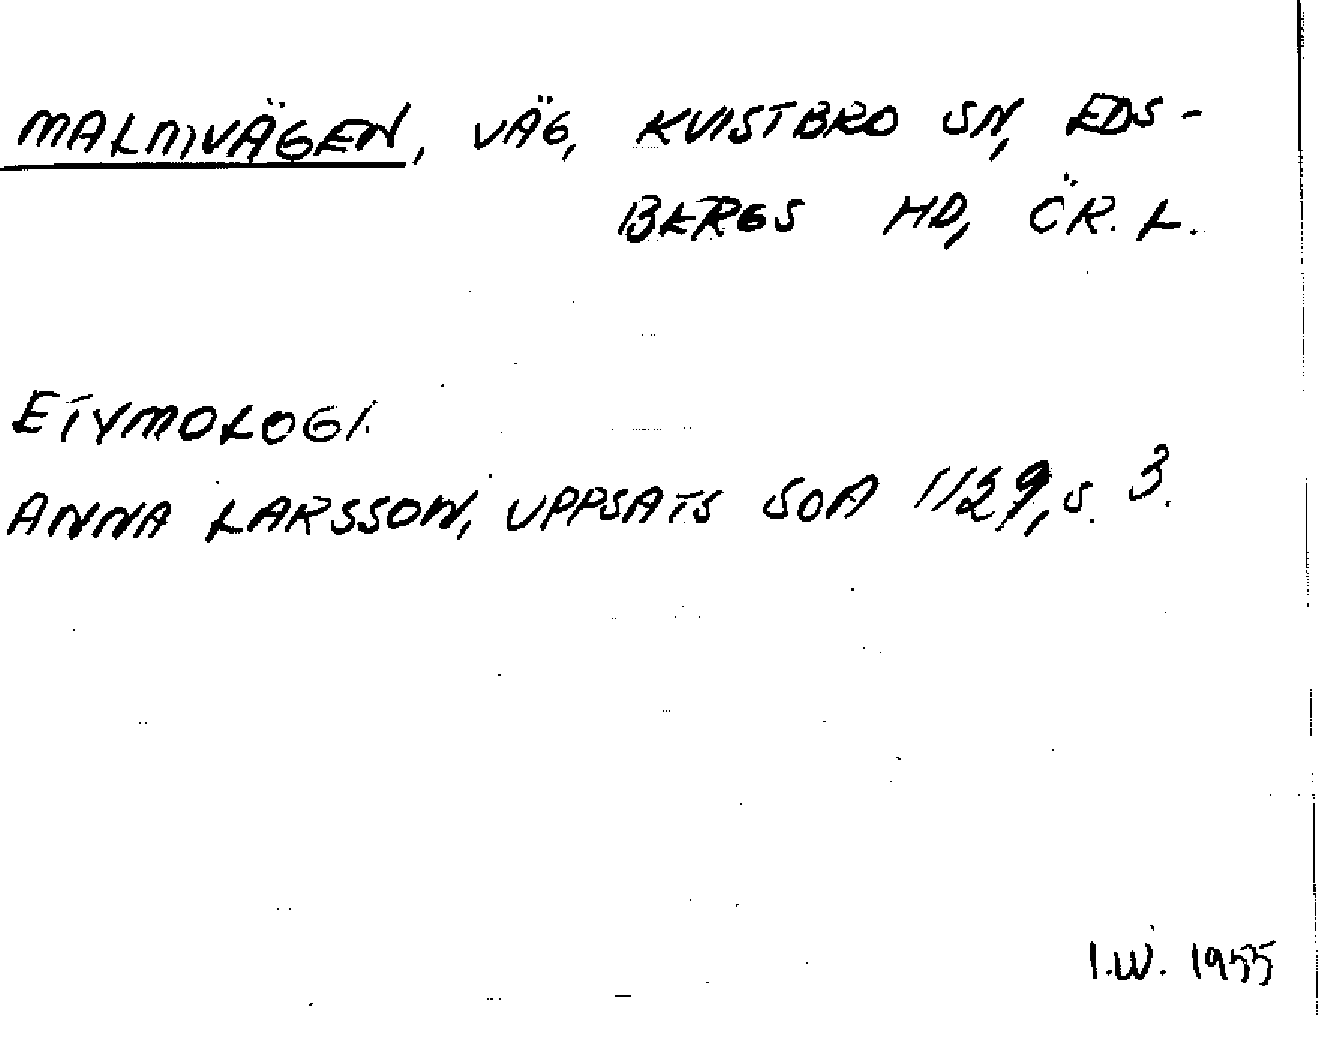 MALMVÄGEN, VÄG, KVISTBRO SN, EDS-
BERGS HD, ÖR. L.
ETYMOLOGI.
ANNA LARSSON, UPPSATS SOA 1129, S. 3.
I.W. 1955